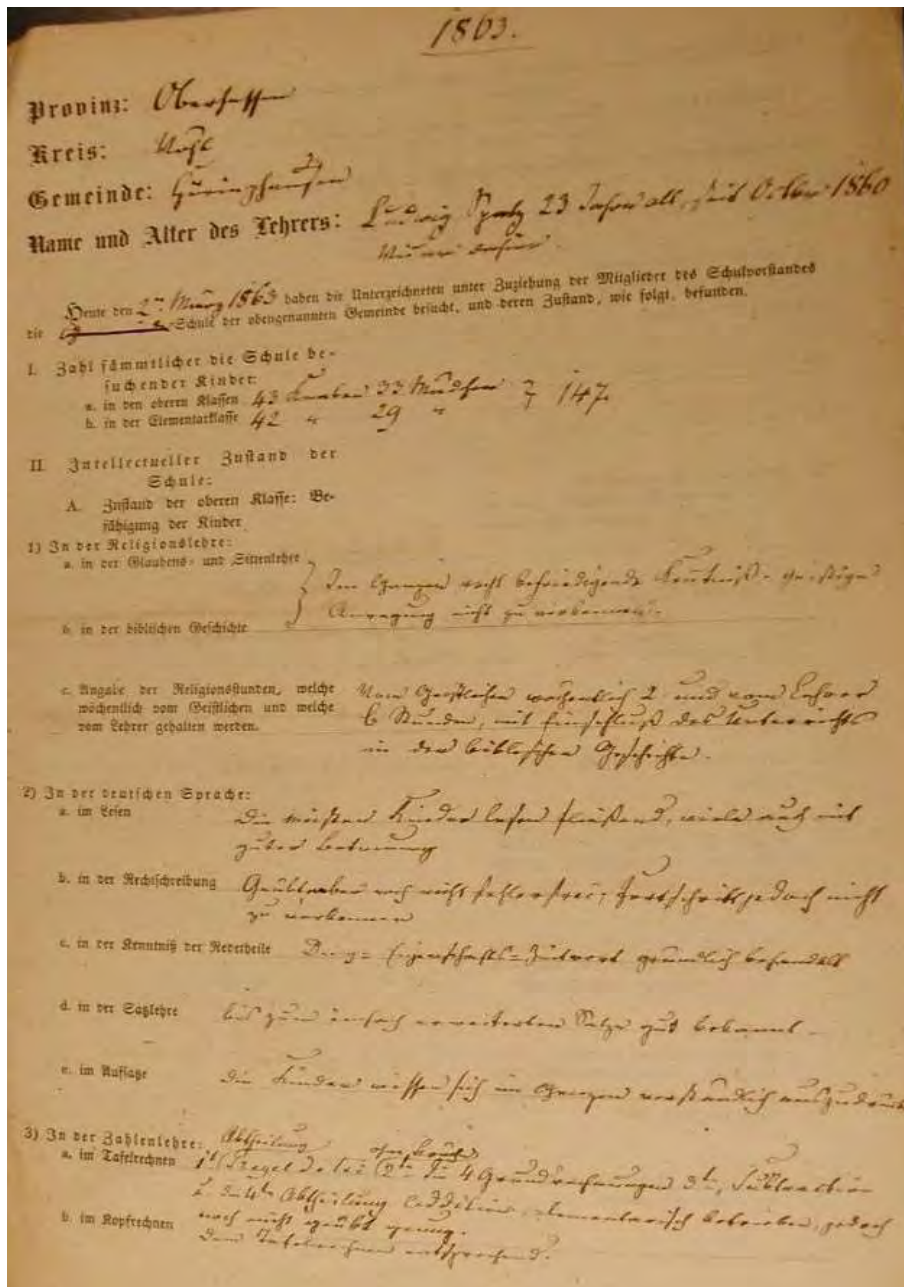 1863.
Provinz: Oberhessen
Kreis: Vöhl
Gemeinde: Höringhausen
Name und Alter des Lehrers: Ludwig Spatz 23 Jahre alt, seit October 1860
Heute den 2ten März 1863 haben die Unterzeichneten unter Zuziehung der Mitglieder des Schulvorstandes
die Schule der obengenannten Gemeinde besucht, und deren Zustand, wie folgt, befunden.
I. Zahl sämmtlicher die Schule be-
suchender Kinder:
a. in den oberen Klassen 43 Knaben 33 Mädchen
b. in der Elementarklasse 42 " 29 " } 147.
II. Intellectueller Zustand der
Schule:
A. Zustand der oberen Klasse: Be-
fähigung der Kinder
1) In der Religionslehre:
a. in der Glaubens- und Sittenlehre } Im Ganzen recht befriedigende Kentniß - geistige
b. in der biblischen Geschichte } Anregung nicht zu verkennen.
c. Angabe der Religionsstunden, welche
wöchentlich vom Geistlichen und welche
vom Lehrer gehalten werden.
Vom Geistlichen wöchentlich 2 und vom Lehrer
6 Stunden, mit Einschluß des Unterrichts
in der biblischen Geschichte.
2) In der deutschen Sprache:
a. im Lesen Die meisten Kinder lesen fließend, viele auch mit
guter Betonung
b. in der Rechtschreibung Geübt aber noch nicht fehlerfrei, Fortschritt jedoch nicht
zu verkennen
c. in der Kenntniß der Redetheile Ding- Eigenschafts- Zeitwort gründlich behandelt
d. in der Satzlehre bis zum einfach erweiterten Satze gut bekannt -
e. im Aufsatze Die Kinder wissen sich im Ganzen verständlich auszudrücken
3) In der Zahlenlehre: Abtheilung ohne Brüche
a. im Tafelrechnen 1te Regel de tri 2te die 4 Grundrechnungen 3te, Subtraction
u. die 4te Abtheilung Addition, elementarisch betrieben, jedoch
noch nicht geübt genug.
b. im Kopfrechnen Dem Tafelrechnen entsprechend.